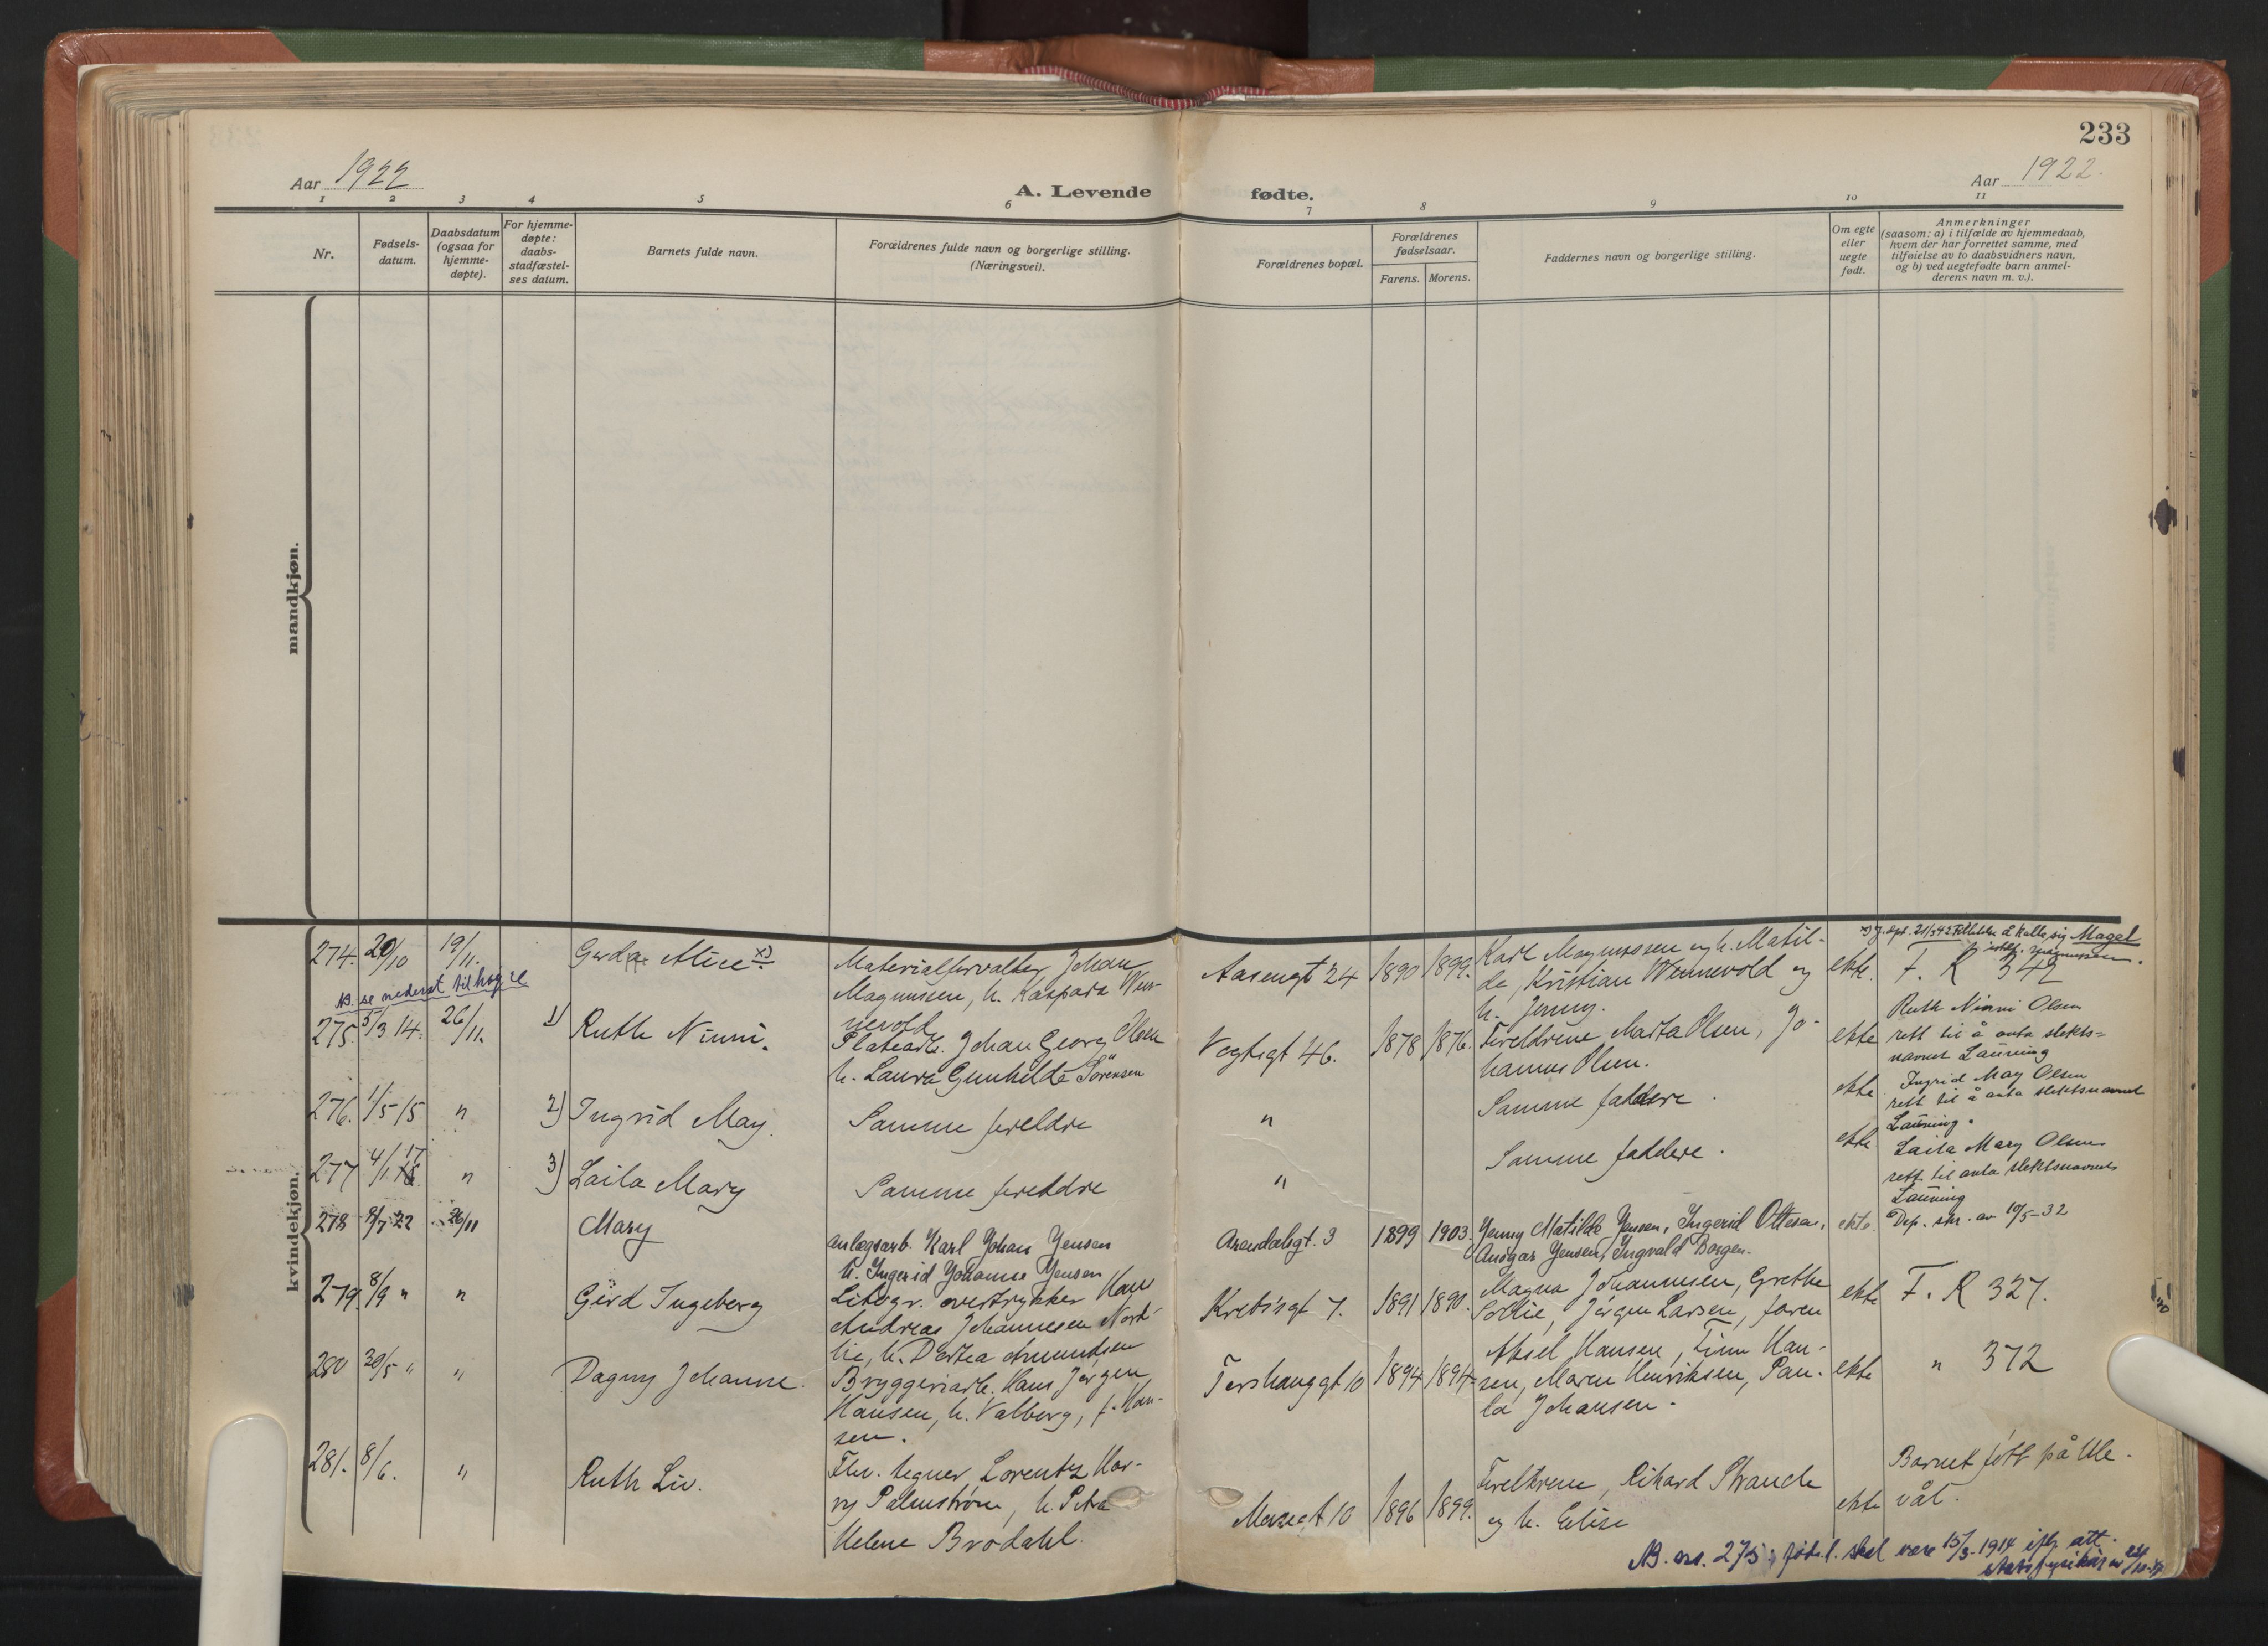 233
Aar 1922
A. Levende fødte.
Aar 1922.
1 2 3 4 5 6 7 8 9 10 11
Nr.
Fødsels-
datum.
Daabsdatum
(ogsaa for
hjemme-
døpte).
For hjemme-
døpte:
daabs-
stadfæstel-
ses datum.
Barnets fulde navn.
Forældrenes fulde navn og borgerlige stilling.
(Næringsvei).
Forældrenes bopæl.
Forældrenes
fødselsaar.
Farens. Morens.
Faddernes navn og borgerlige stilling.
Om egte
eller
uegte
født.
Anmerkninger
(saasom: a) i tilfælde av hjemmedaab,
hvem der har forrettet samme, med
tilføielse av to daabsvidners navn,
og b) ved uegtefødte barn anmel-
derens navn m. v.).
mandkjøn.
kvindekjøn.
274. 20/10 19/11. Gerda Alice x)
Materialforvalter Johan
Magnussen, h. Kaspara Wen-
nevold
Aasengt 24 1890 1899.
Karl Magnussen og h. Matil-
de, Kristian Wennevold og
h. Jenny.
ekte.
Magel
F. R 342
NB. se nederst til høgre
275. 5/3 14. 26/11. 1) Ruth Ninni.
Platearb. Johan Georg Olsen
h. Laura Gunhilde Sörensen
Vogtsgt 46. 1878 1876.
Foreldrene Marta Olsen, Jo-
hannes Olsen.
ekte
Ruth Ninni Olsen
rett til å anta slekts=
navnet Launing
276. 1/5-15 " 2) Ingrid May.
Samme foreldre
"
Samme faddere.
ekte
Ingrid May Olsen
rett til å anta slektsnavnet
Launing.
277 4/1 17 " 3) Laila Mary
Samme foreldre
"
Samme faddere.
ekte
Laila Mary Olsen
rett til anta slektsnavnet
Launing
Dep. skr. av 10/5-32
278 8/7 22 26/11 Mary
Anlægsarb. Karl Johan Jensen
h. Ingerid Johanne Jensen
Arendalsgt. 3 1899 1903.
Jenny Matilde Jensen, Ingerid Ottesen,
Ansgar Jensen, Ingvald Borgen.
ekte.
279. 8/9 " " Gerd Ingeborg
Litogr. overtrykker Hans
Andreas Johannesen Nord-
lie, h. Dortea Amundsen
Krebsgt 7. 1891 1890.
Magna Johannesen, Grethe
Sollie, Jørgen Larsen, faren
ekte
F. R 327.
280 30/5 " " Dagny Johanne.
Bryggeriarb. Hans Jørgen
Hansen, h. Valborg, f. Han-
sen.
Torshauggt 10 1894 1894
Aksel Hansen, Finn Han-
sen, Maren Henriksen, Pau-
la Johansen.
ekte
" 372
281. 8/6. " Ruth Liv.
tegner Lorentz Har-
ry Palmstrøm, h. Petra
Helene Brodahl.
10 1896 1899.
Foreldrene, Rikard Strande
og h. Elise
ekte
Barnet født på Ule-
vål.
NB. nr. 275: føds.l. skal være 15/3-1914 iflg. att.